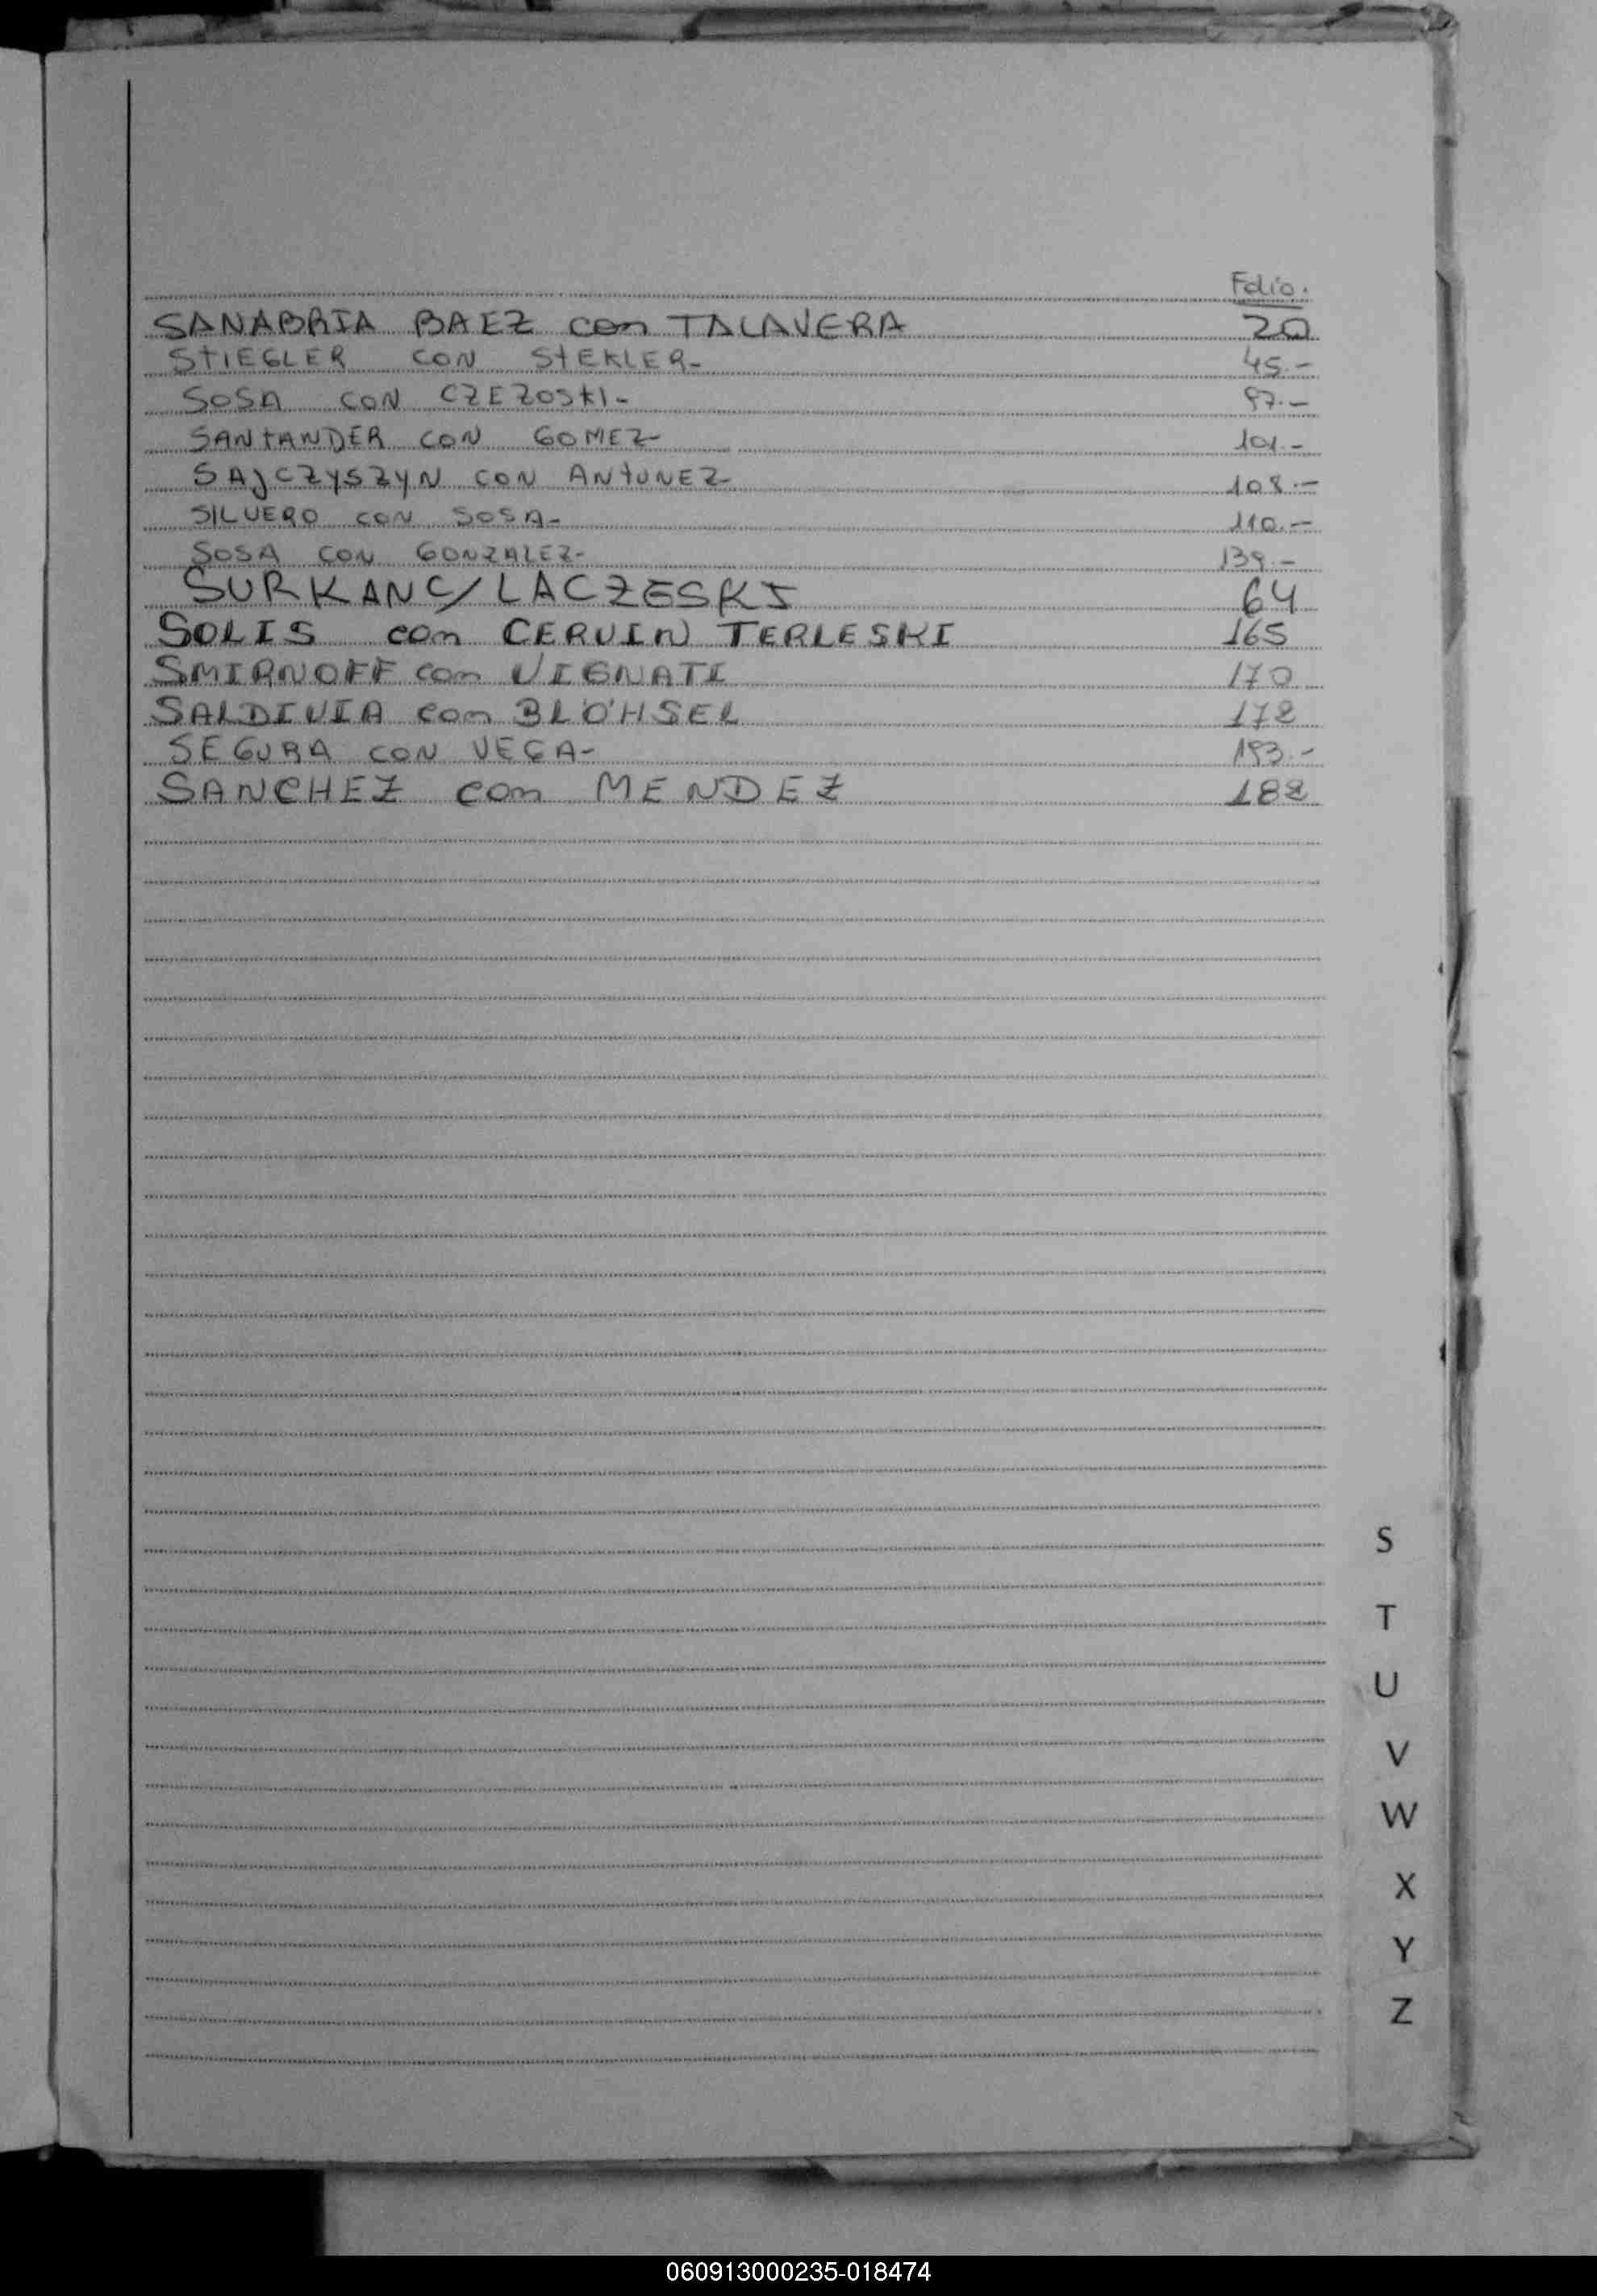 Folio.
SANABRIA BAEZ con TALAVERA 20
STIEGLER CON STEKLER- 45.-
SOSA CON CZEZOSKI- 97.-
SANTANDER CON GOMEZ- 101.-
SAJCZYSZYN CON ANTUNEZ- 108.-
SILVERO CON SOSA- 110.-
SOSA CON GONZALEZ- 139.-
SURKAN C/ LACZESKI 64
SOLIS con CERVIN TERLESKI 165
SMIRNOFF con VIGNATI 170
SALDIVIA con BLÖHSEL 172
SEGURA CON VEGA- 193.-
SANCHEZ con MENDEZ 182
S
T
U
V
W
X
Y
Z
060913000235-018474